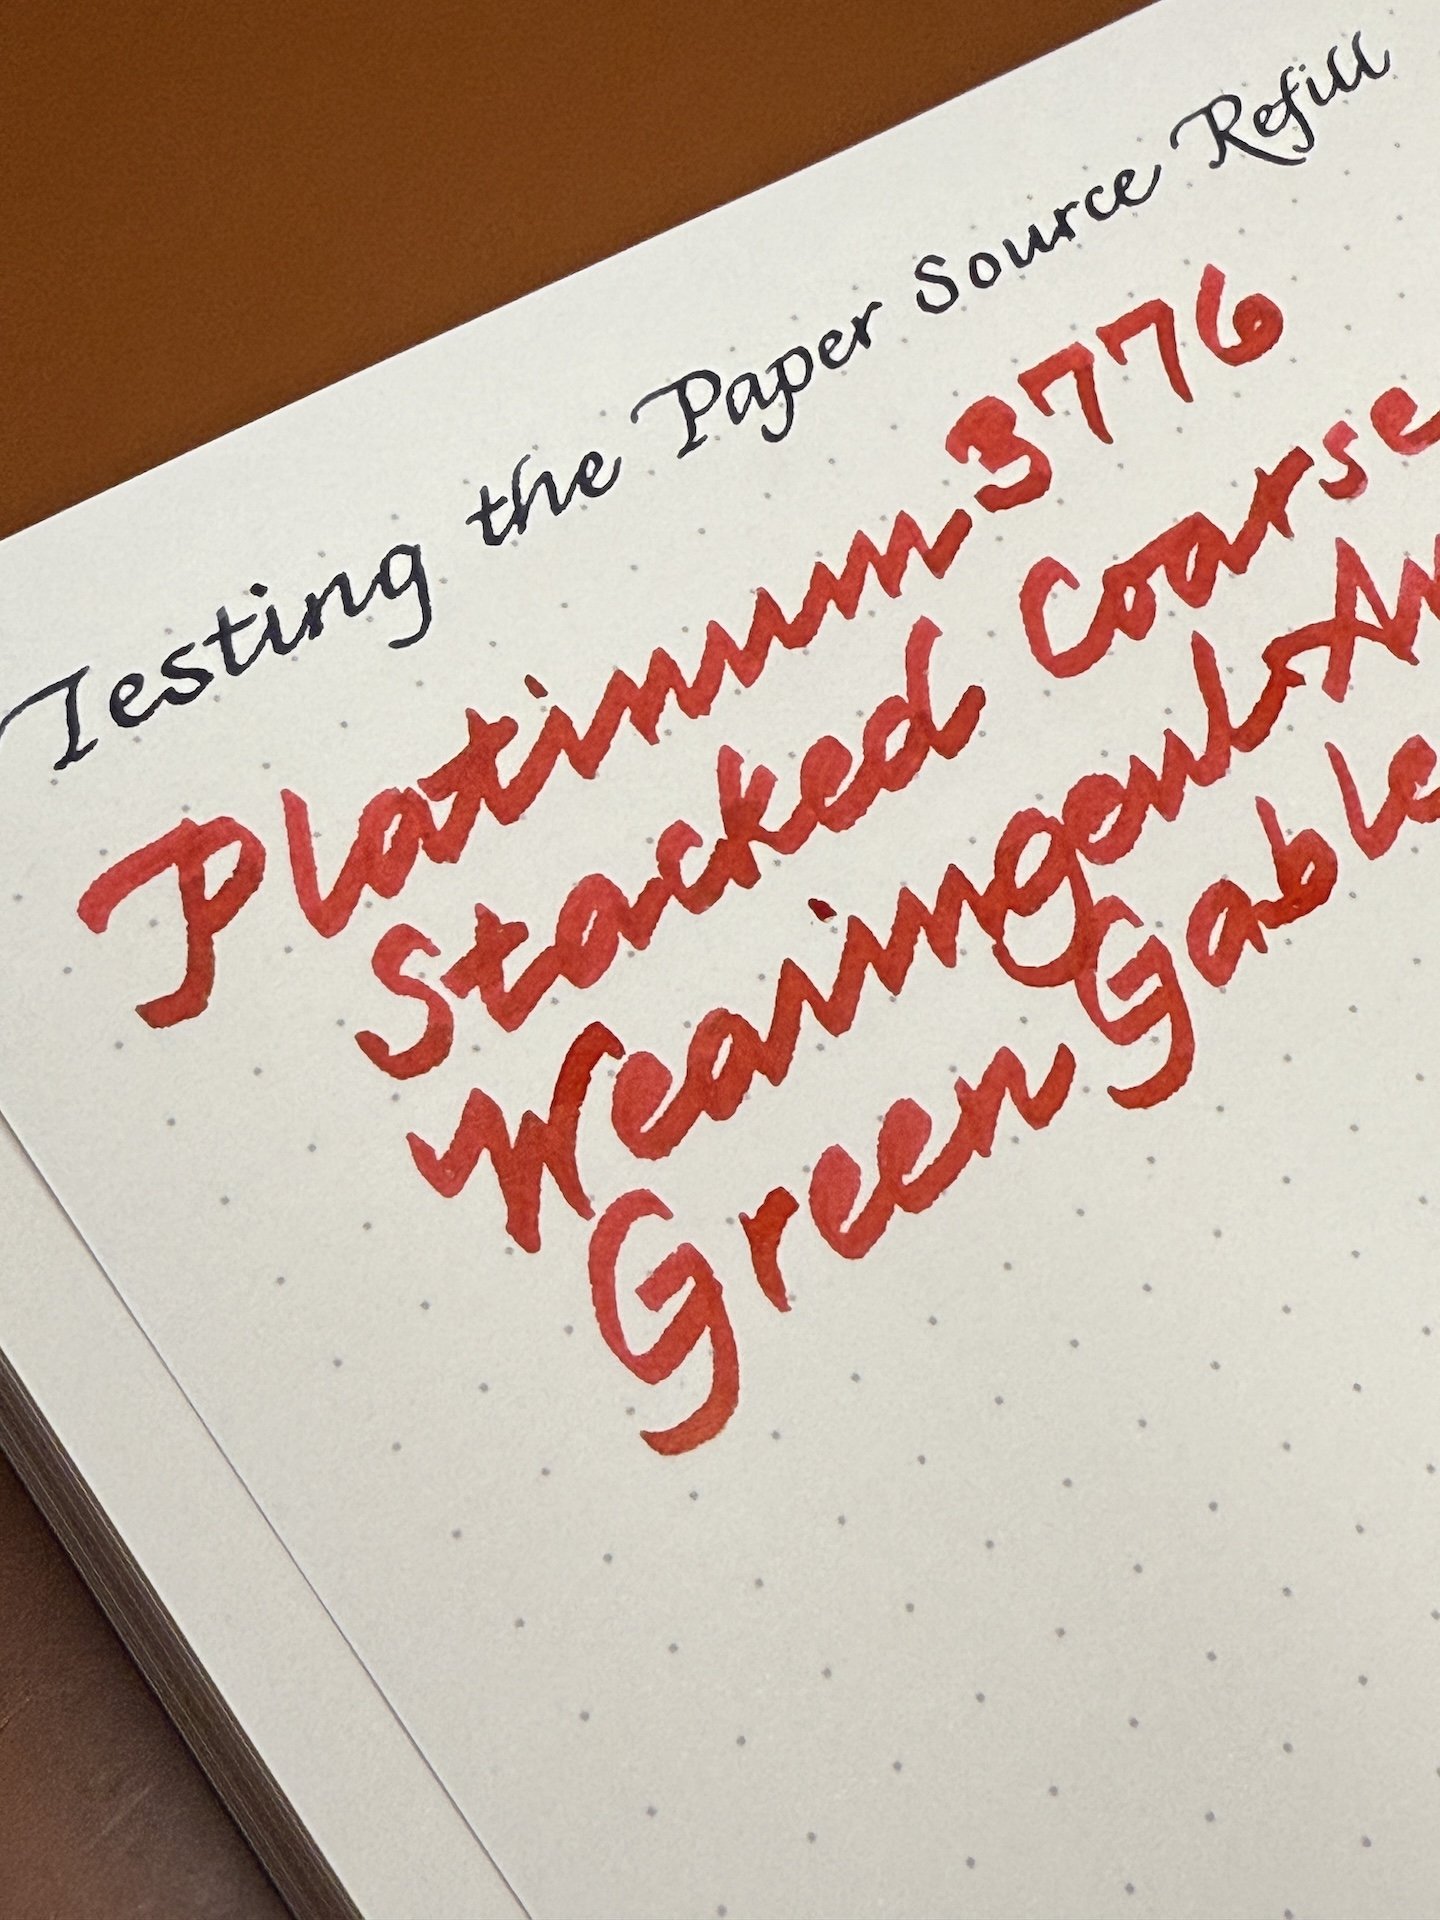 Testing the Paper Source Refill
Platinum 3776
Stacked Coarse
Wearingeul x An
Green Gable